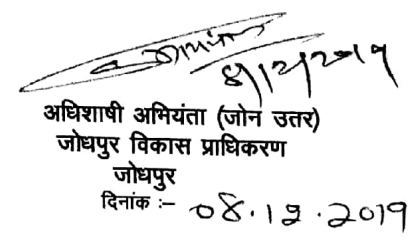 अधिशाषी अभियंता (जोन उतर)
जोधपुर विकास प्राधिकरण
जोधपुर
दिनांक :- 08.12.2019